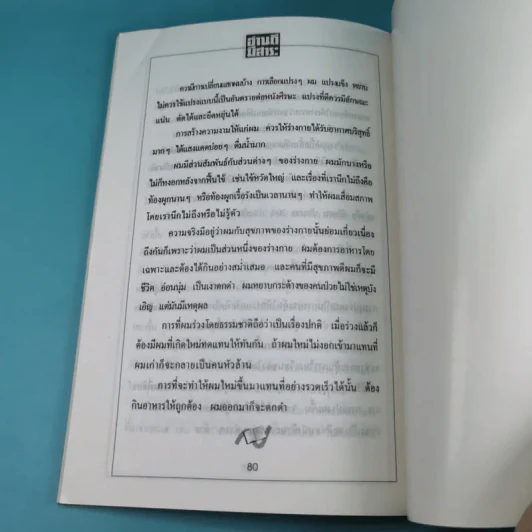 อ่านดี
มีสาระ
ควรมีการเปลี่ยนแชมพูบ้าง การเลือกแปรงๆ ผม แปรงแข็ง หยาบ
ไม่ควรใช้แปรงแบบนี้เป็นอันตรายต่อหนังศีรษะ แปรงที่ดีควรมีลักษณะ
แน่น ดัดได้และยืดหยุ่นได้
การสร้างความงามให้แก่ผม ควรให้ร่างกายได้รับอากาศบริสุทธิ์
มากๆ ได้แสงแดดบ่อยๆ ดื่มน้ำมาก
ผมมีส่วนสัมพันธ์กับส่วนต่างๆ ของร่างกาย ผมมักบางหรือ
ไม่ก็หงอกหลังจากฟื้นไข้ เช่นไข้หวัดใหญ่ และเรื่องที่เรานึกไม่ถึงคือ
ท้องผูกนานๆ หรือท้องผูกเรื้อรังเป็นเวลานานๆ ทำให้ผมเสื่อมสภาพ
โดยเรานึกไม่ถึงหรือไม่รู้ตัว
ความจริงมีอยู่ว่าผมกับสุขภาพของร่างกายนั้นย่อมเกี่ยวเนื่อง
ถึงกันก็เพราะว่าผมเป็นส่วนหนึ่งของร่างกาย ผมต้องการอาหารโดย
เฉพาะและต้องได้กินอย่างสม่ำเสมอ และคนที่มีสุขภาพดีผมก็จะมี
ชีวิต อ่อนนุ่ม เป็นเงาดกดำ ผมหยาบกระด้างของคนป่วยไม่ใช่เหตุบัง
เอิญ แต่มันมีเหตุผล
การที่ผมร่วงโดยธรรมชาติถือว่าเป็นเรื่องปกติ เมื่อร่วงแล้วก็
ต้องมีผมที่เกิดใหม่ทดแทนให้ทันกัน ถ้าผมใหม่ไม่งอกเข้ามาแทนที่
ผมเก่าก็จะกลายเป็นคนหัวล้าน
การที่จะทำให้ผมใหม่ขึ้นมาแทนที่อย่างรวดเร็วได้นั้น ต้อง
กินอาหารให้ถูกต้อง ผมออกมาก็จะดกดำ
80